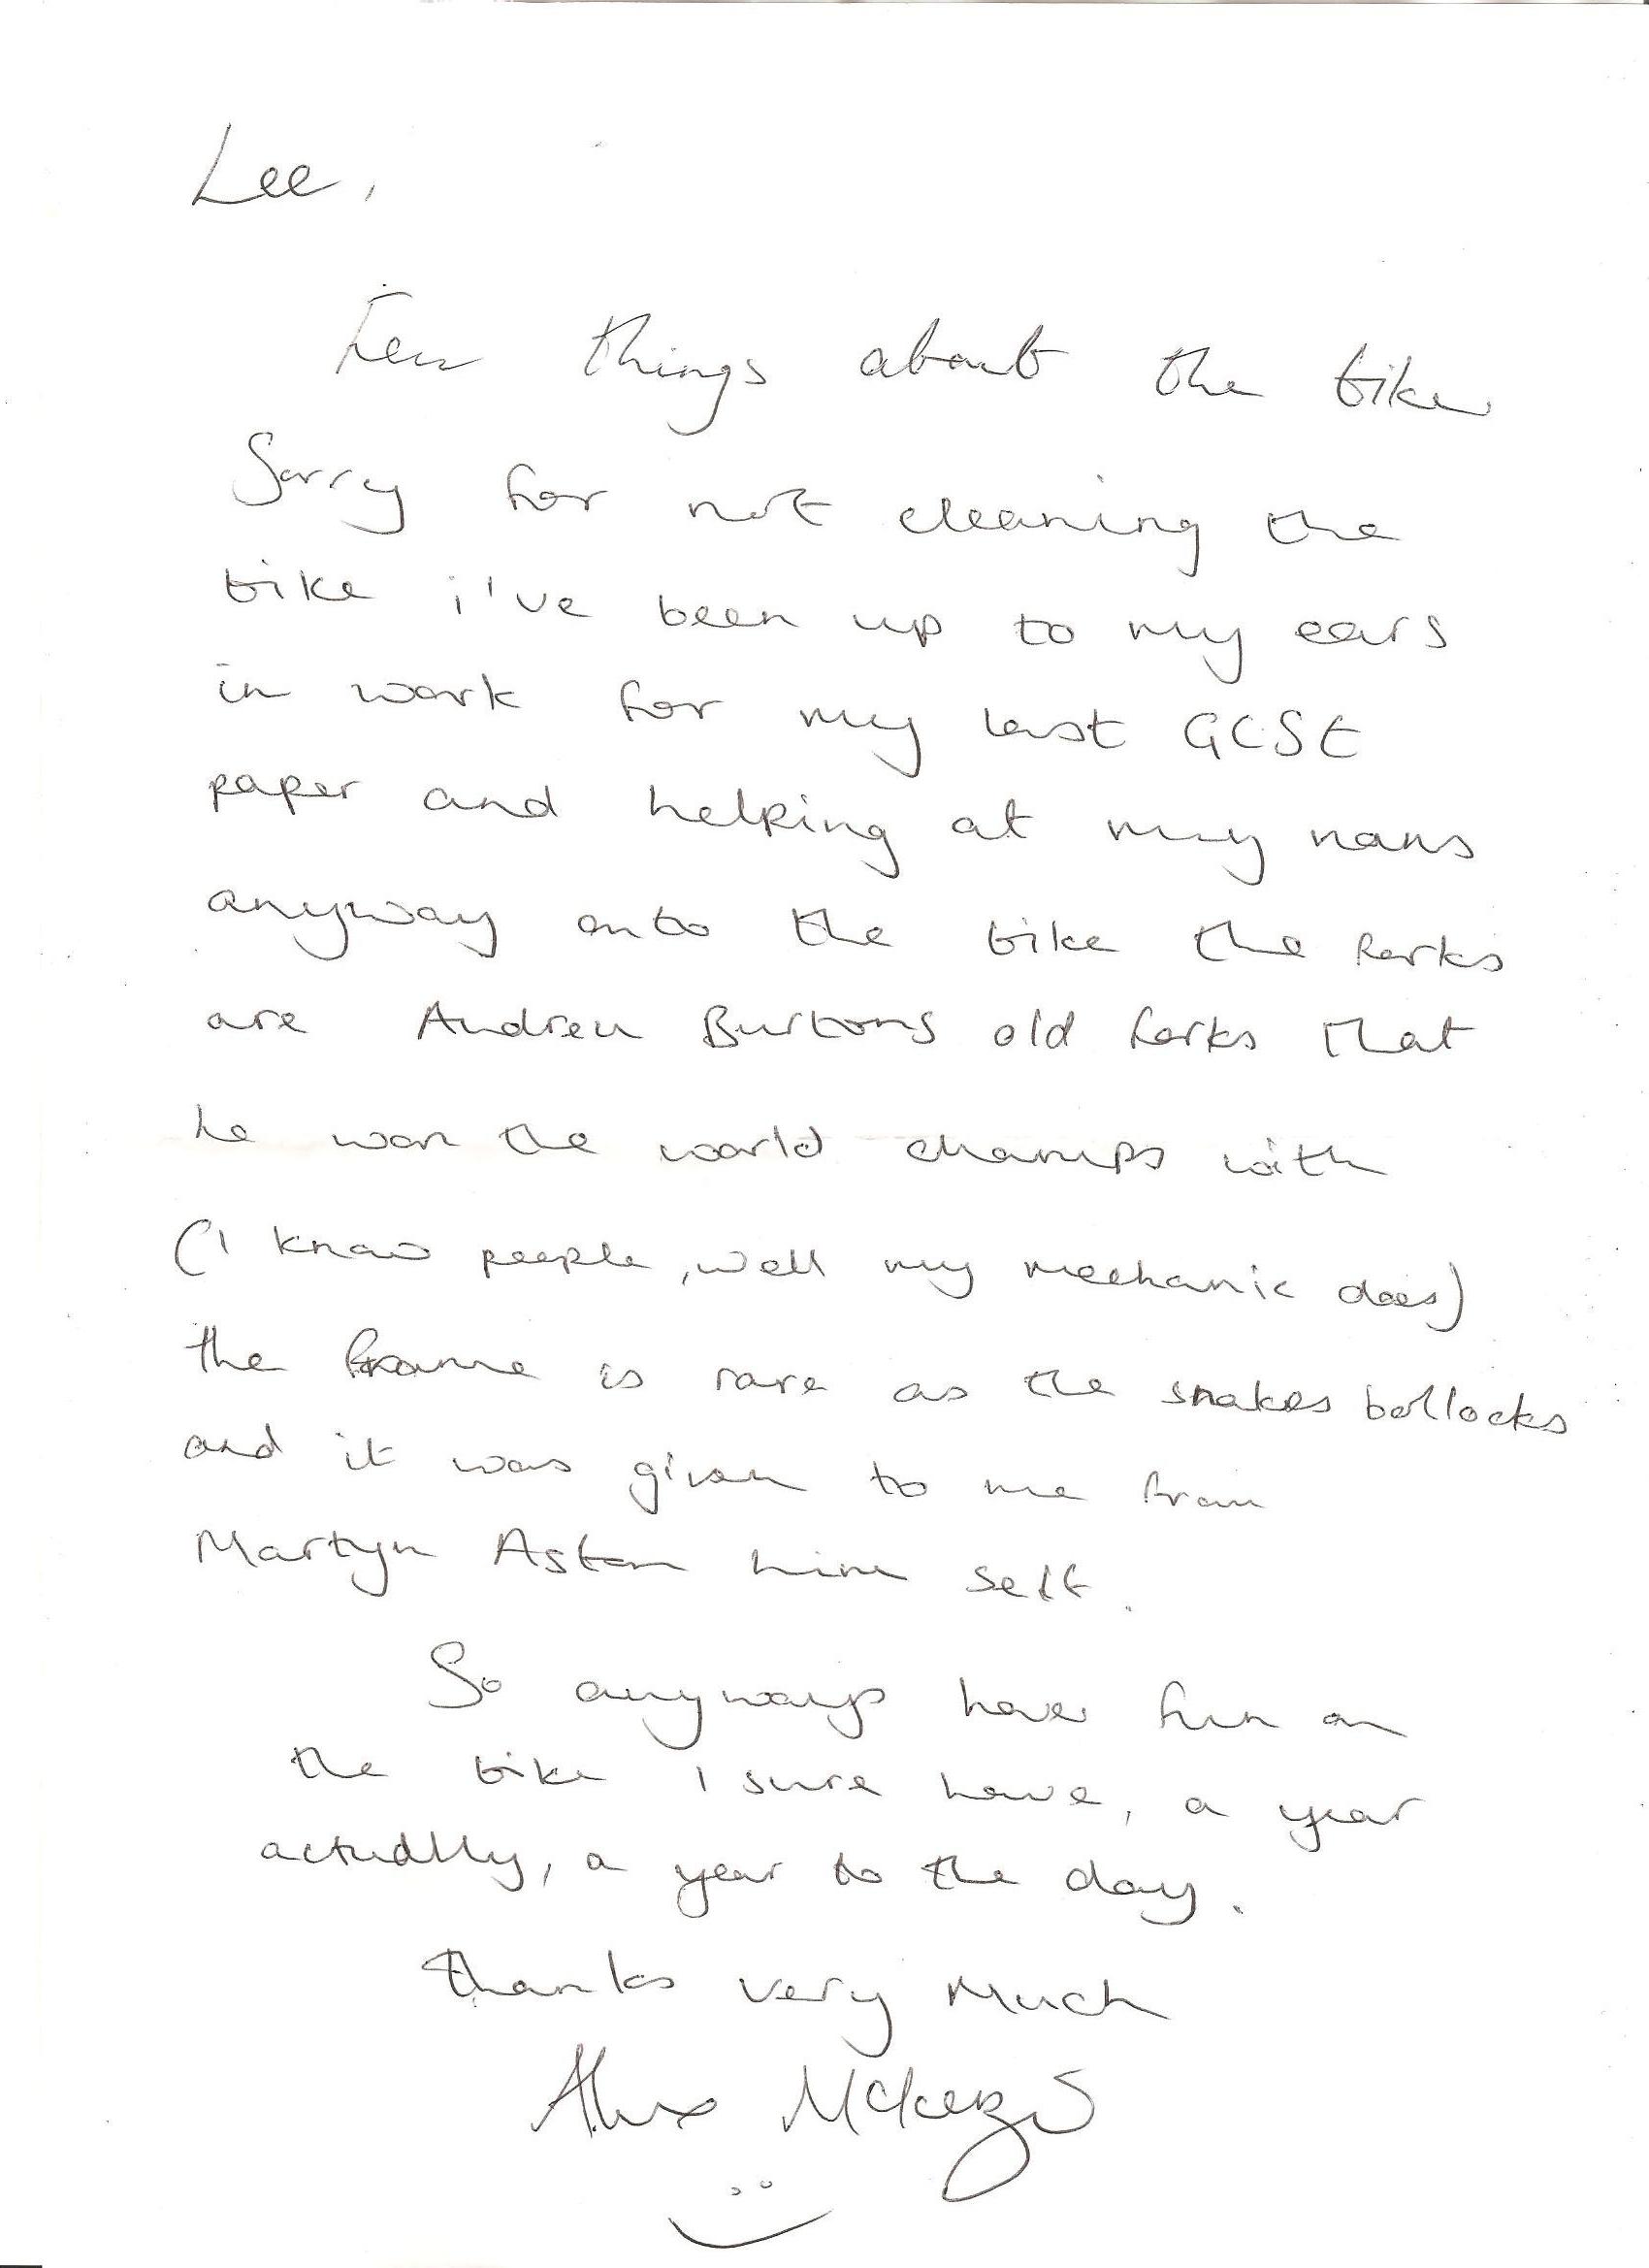 Lee,
Few things about the bike
Sorry for not cleaning the
bike i've been up to my ears
in work for my last GCSE
paper and helping at my nans
anyway onto the bike the forks
are Andrew Burtons old forks that
he won the world champs with
(I know people, well my mechanic does)
the frame is rare as the snakes bollocks
and it was given to me from
Martyn Aston him self.
So anyways have fun on
the bike I sure have, a year
actually, a year to the day.
thanks very Much
Alex